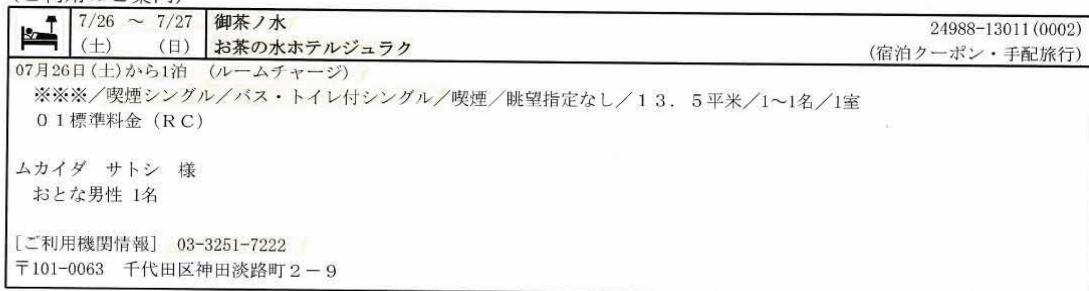 7/26 ~ 7/27 御茶ノ水 24988-13011(0002)
(土) (日) お茶の水ホテルジュラク (宿泊クーポン・手配旅行)
07月26日(土)から1泊 (ルームチャージ)
※※※/喫煙シングル/バス・トイレ付シングル/喫煙/眺望指定なし/13.5平米/1~1名/1室
01標準料金(RC)
ムカイダ サトシ 様
おとな男性 1名
[ご利用機関情報] 03-3251-7222
〒101-0063 千代田区神田淡路町2-9